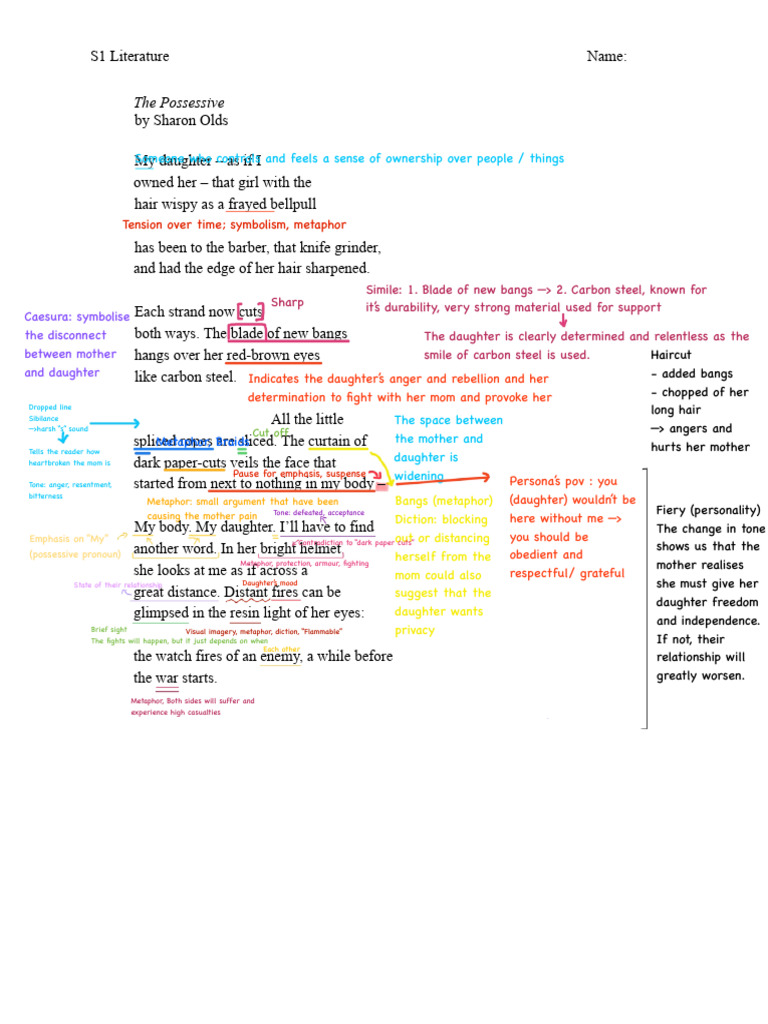 S1 Literature
Name:
The Possessive
by Sharon Olds
Someone who controls and feels a sense of ownership over people / things
My daughter – as if I
owned her – that girl with the
hair wispy as a frayed bellpull
Tension over time; symbolism, metaphor
has been to the barber, that knife grinder,
and had the edge of her hair sharpened.
Simile: 1. Blade of new bangs —> 2. Carbon steel, known for
it's durability, very strong material used for support
The daughter is clearly determined and relentless as the
smile of carbon steel is used.
Sharp
Caesura: symbolise
the disconnect
between mother
and daughter
Each strand now [cuts]
both ways. The blade of new bangs
hangs over her red-brown eyes
like carbon steel.
Indicates the daughter's anger and rebellion and her
determination to fight with her mom and provoke her
Haircut
- added bangs
- chopped of her
long hair
—> angers and
hurts her mother
Dropped line
Sibilance
->harsh "s" sound
Tells the reader how
heartbroken the mom is
Tone: anger, resentment,
bitterness
All the little
Cut off
Metaphor: Braids
spliced ropes are sliced. The curtain of
dark paper-cuts veils the face that
Pause for emphasis, suspense
started from next to nothing in my body –
The space between
the mother and
daughter is
widening
Persona's pov : you
(daughter) wouldn't be
here without me —>
you should be
obedient and
respectful/ grateful
Bangs (metaphor)
Diction: blocking
out or distancing
herself from the
mom could also
suggest that the
daughter wants
privacy
Fiery (personality)
The change in tone
shows us that the
mother realises
she must give her
daughter freedom
and independence.
If not, their
relationship will
greatly worsen.
Metaphor: small argument that have been
causing the mother pain
Tone: defeated, acceptance
Emphasis on "My"
(possessive pronoun)
My body. My daughter. I'll have to find
Contradiction to "dark paper cuts"
another word. In her bright helmet
Metaphor, protection, armour, fighting
she looks at me as if across a
State of their relationship
Daughter's mood
great distance. Distant fires can be
glimpsed in the resin light of her eyes:
Brief sight
Visual imagery, metaphor, diction, "Flammable"
The fights will happen, but it just depends on when
Each other
the watch fires of an enemy, a while before
the war starts.
Metaphor, Both sides will suffer and
experience high casualties